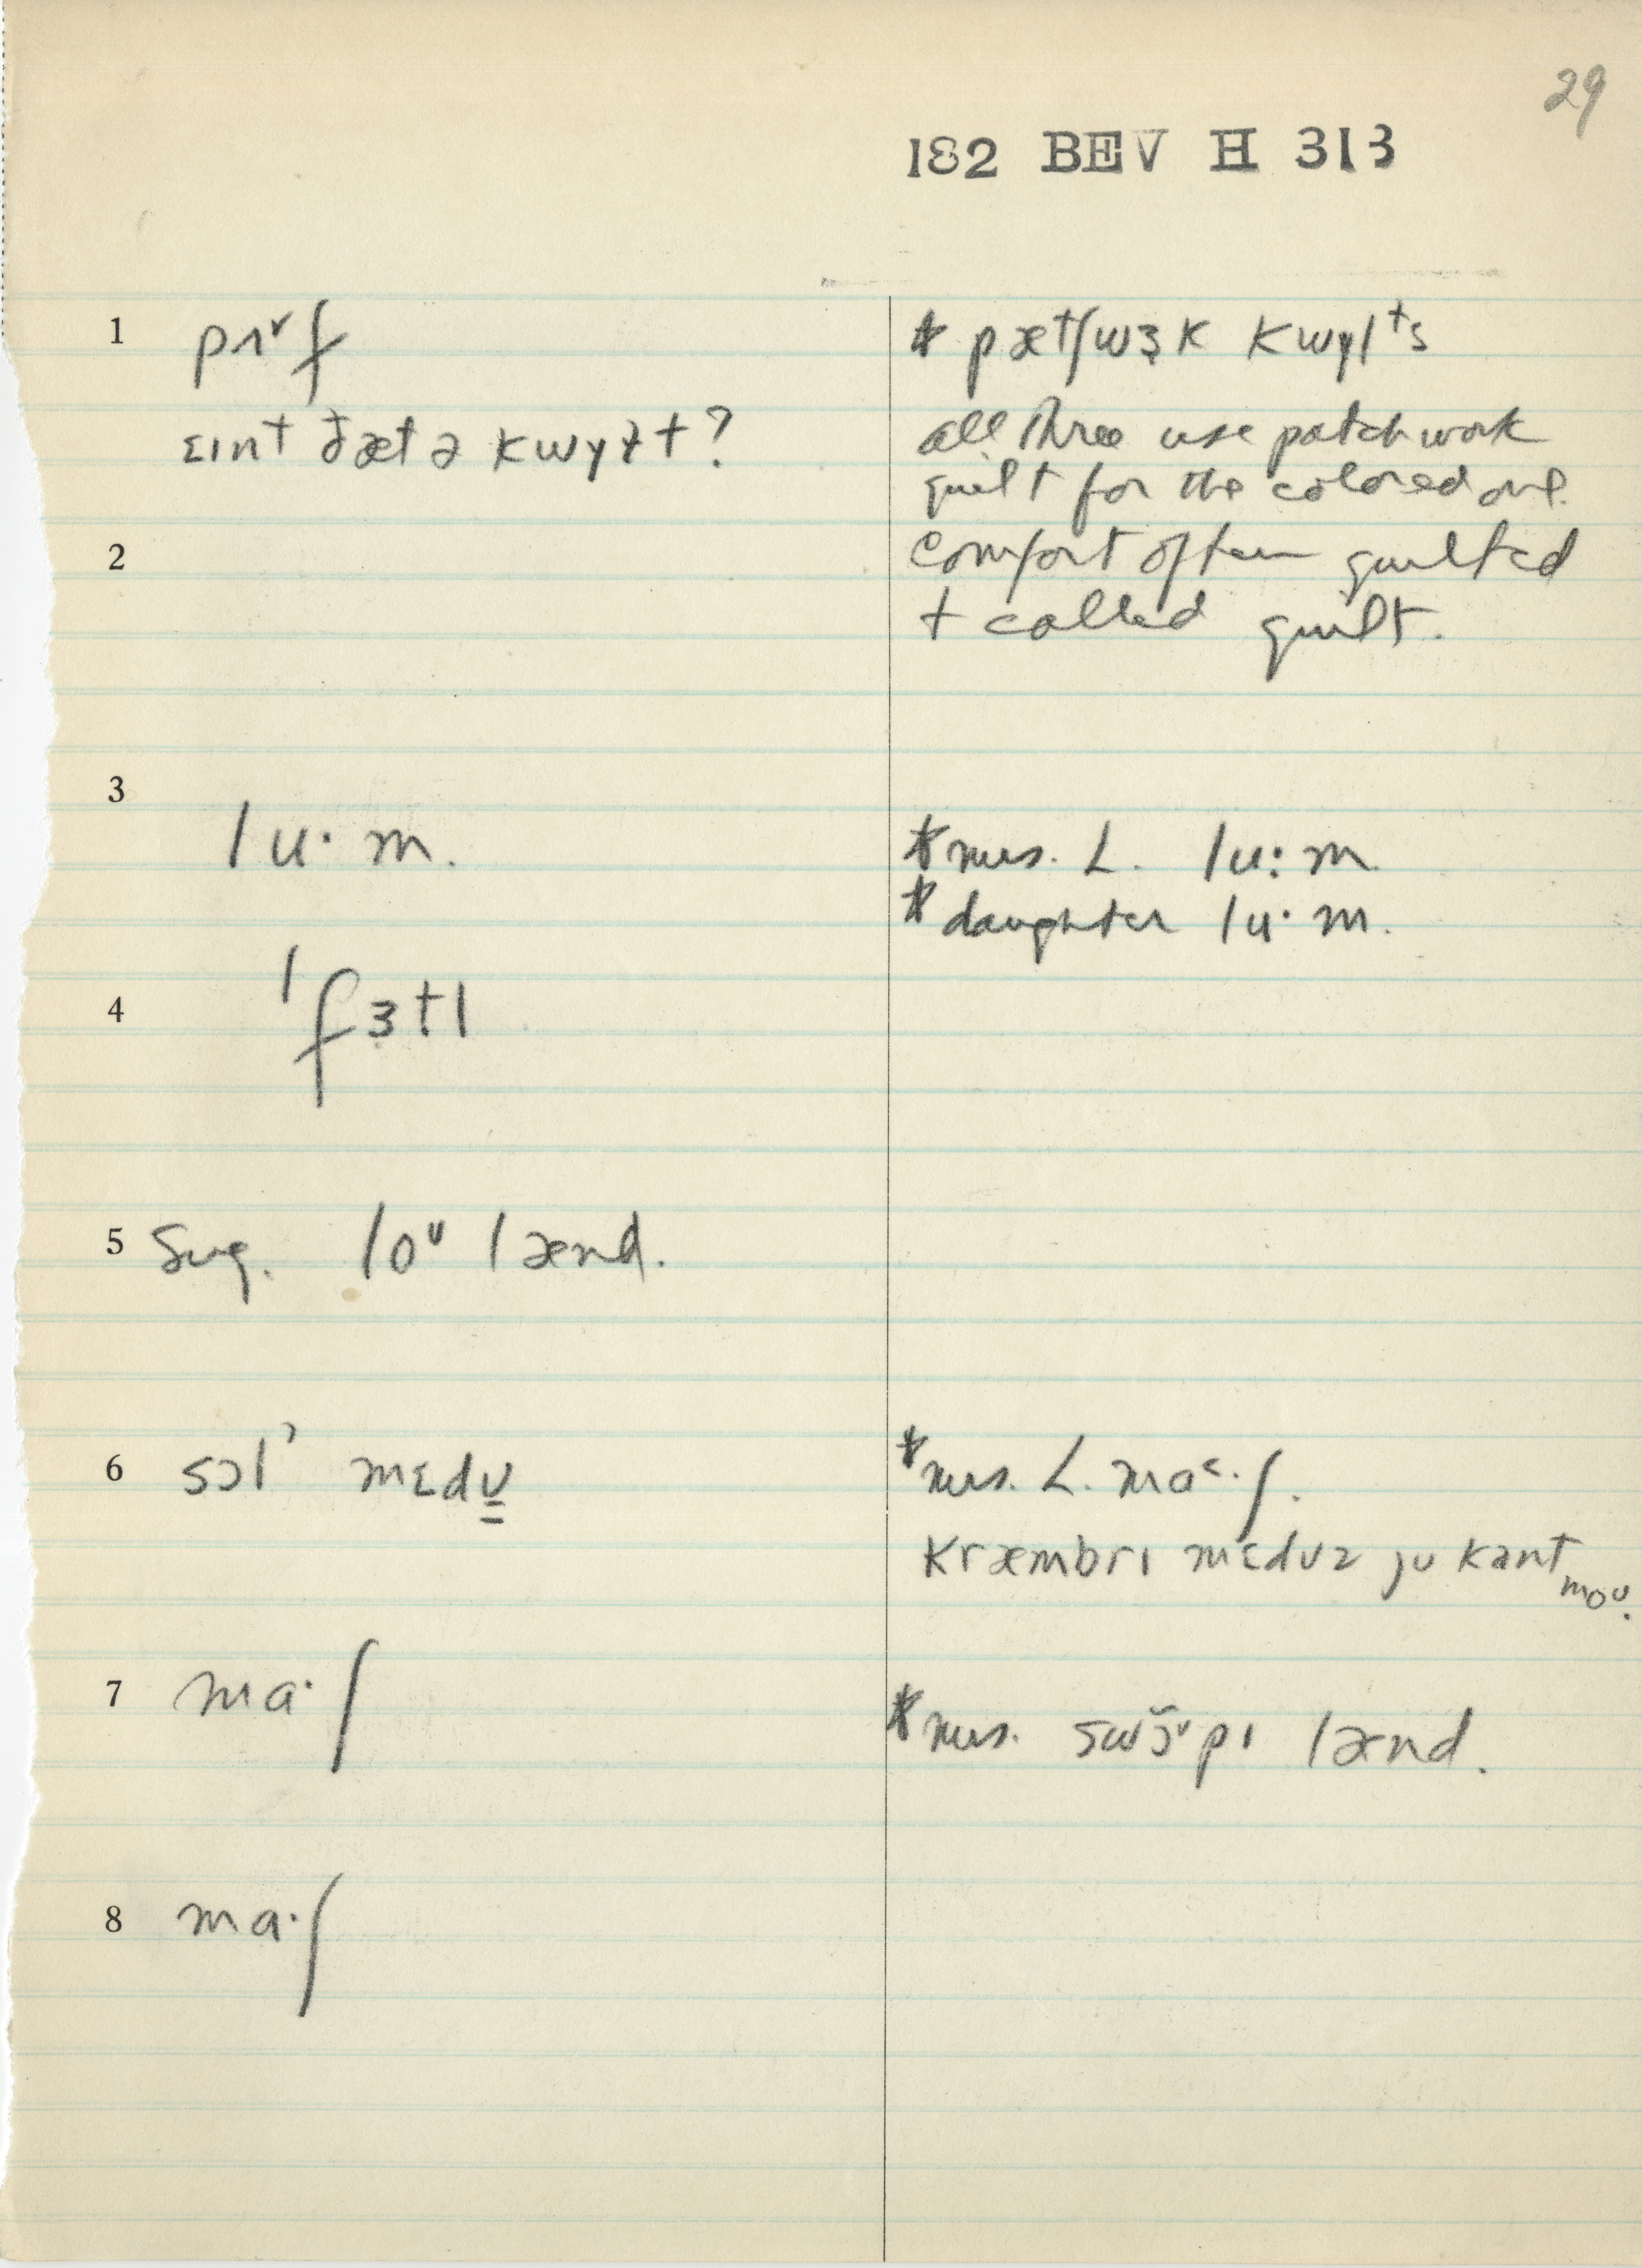 29
182 BEV H 313
1 pʌˇf
ɛɪnt ðæt ə kwɣɫt?
* pætʃwɜk kwɣlᵗs
all three use patchwork
quilt for the colored one.
2
comfort often quilted
+ called quilt.
3
lu·m.
* mrs. L. lu:m.
* daughter lu·m.
4 ˈfɜtl
5 Sug. loᵁ lænd.
6 sɔlˀ mɛdʊ
* mrs. L. maˁ·ʃ.
kræmbrɪ mɛdʊz jʊ kant moʊ.
7 ma·ʃ
* mrs. swɔ̌ˇpɪ lænd.
8 ma·ʃ